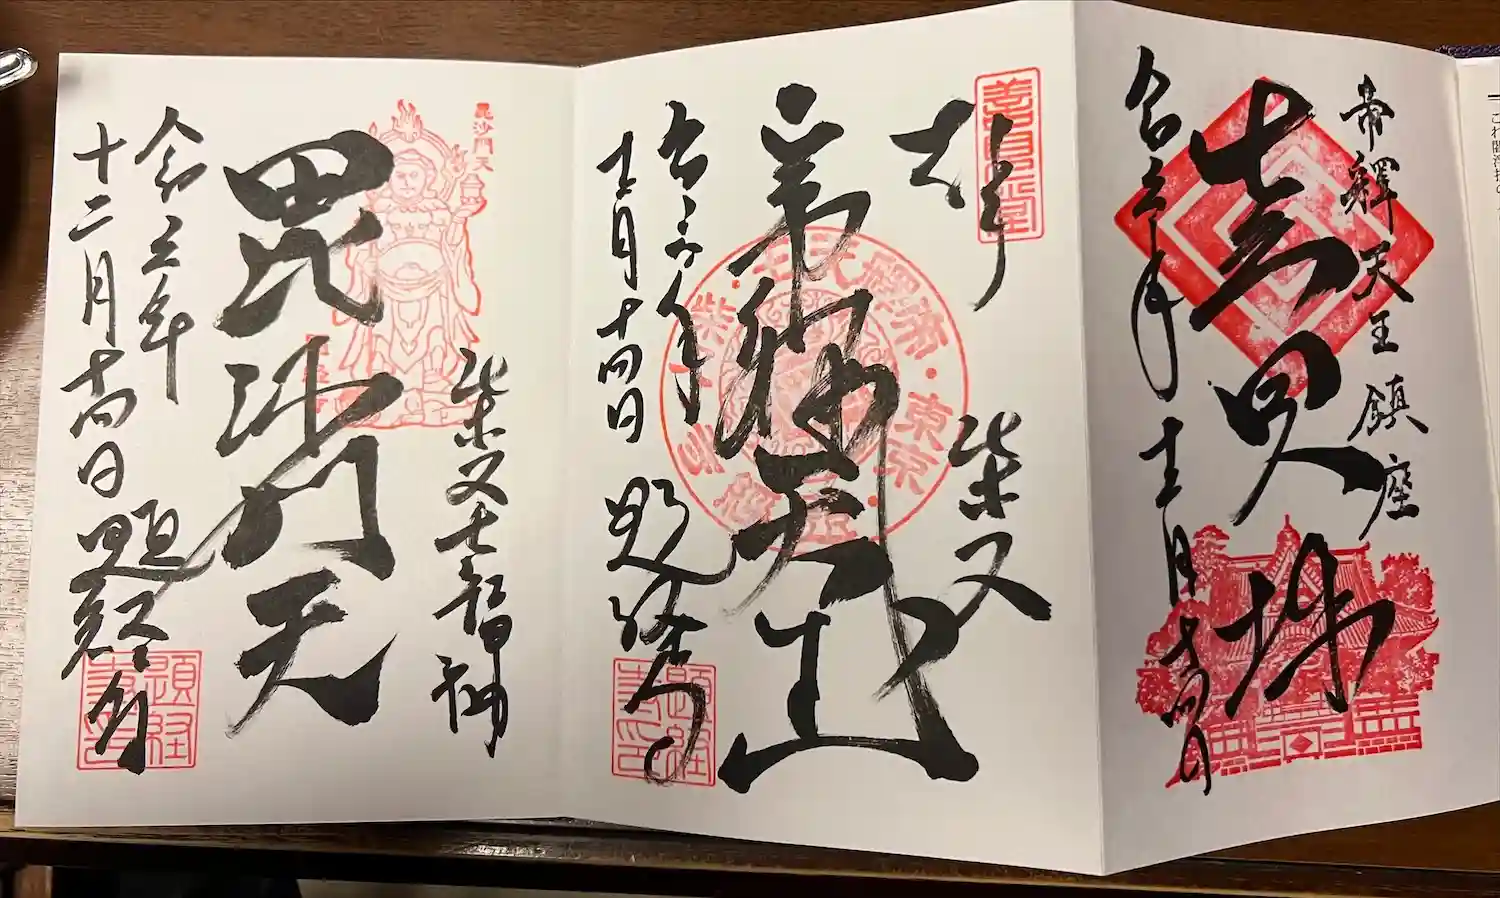 帝釋天王鎮座
喜見城
令和三年十二月十四日
奉拝
柴又
帝釈天王
令和三年
十二月十四日
題経寺
柴又七福神
毘沙門天
毘沙門天
令和三年
十二月十四日
題経寺